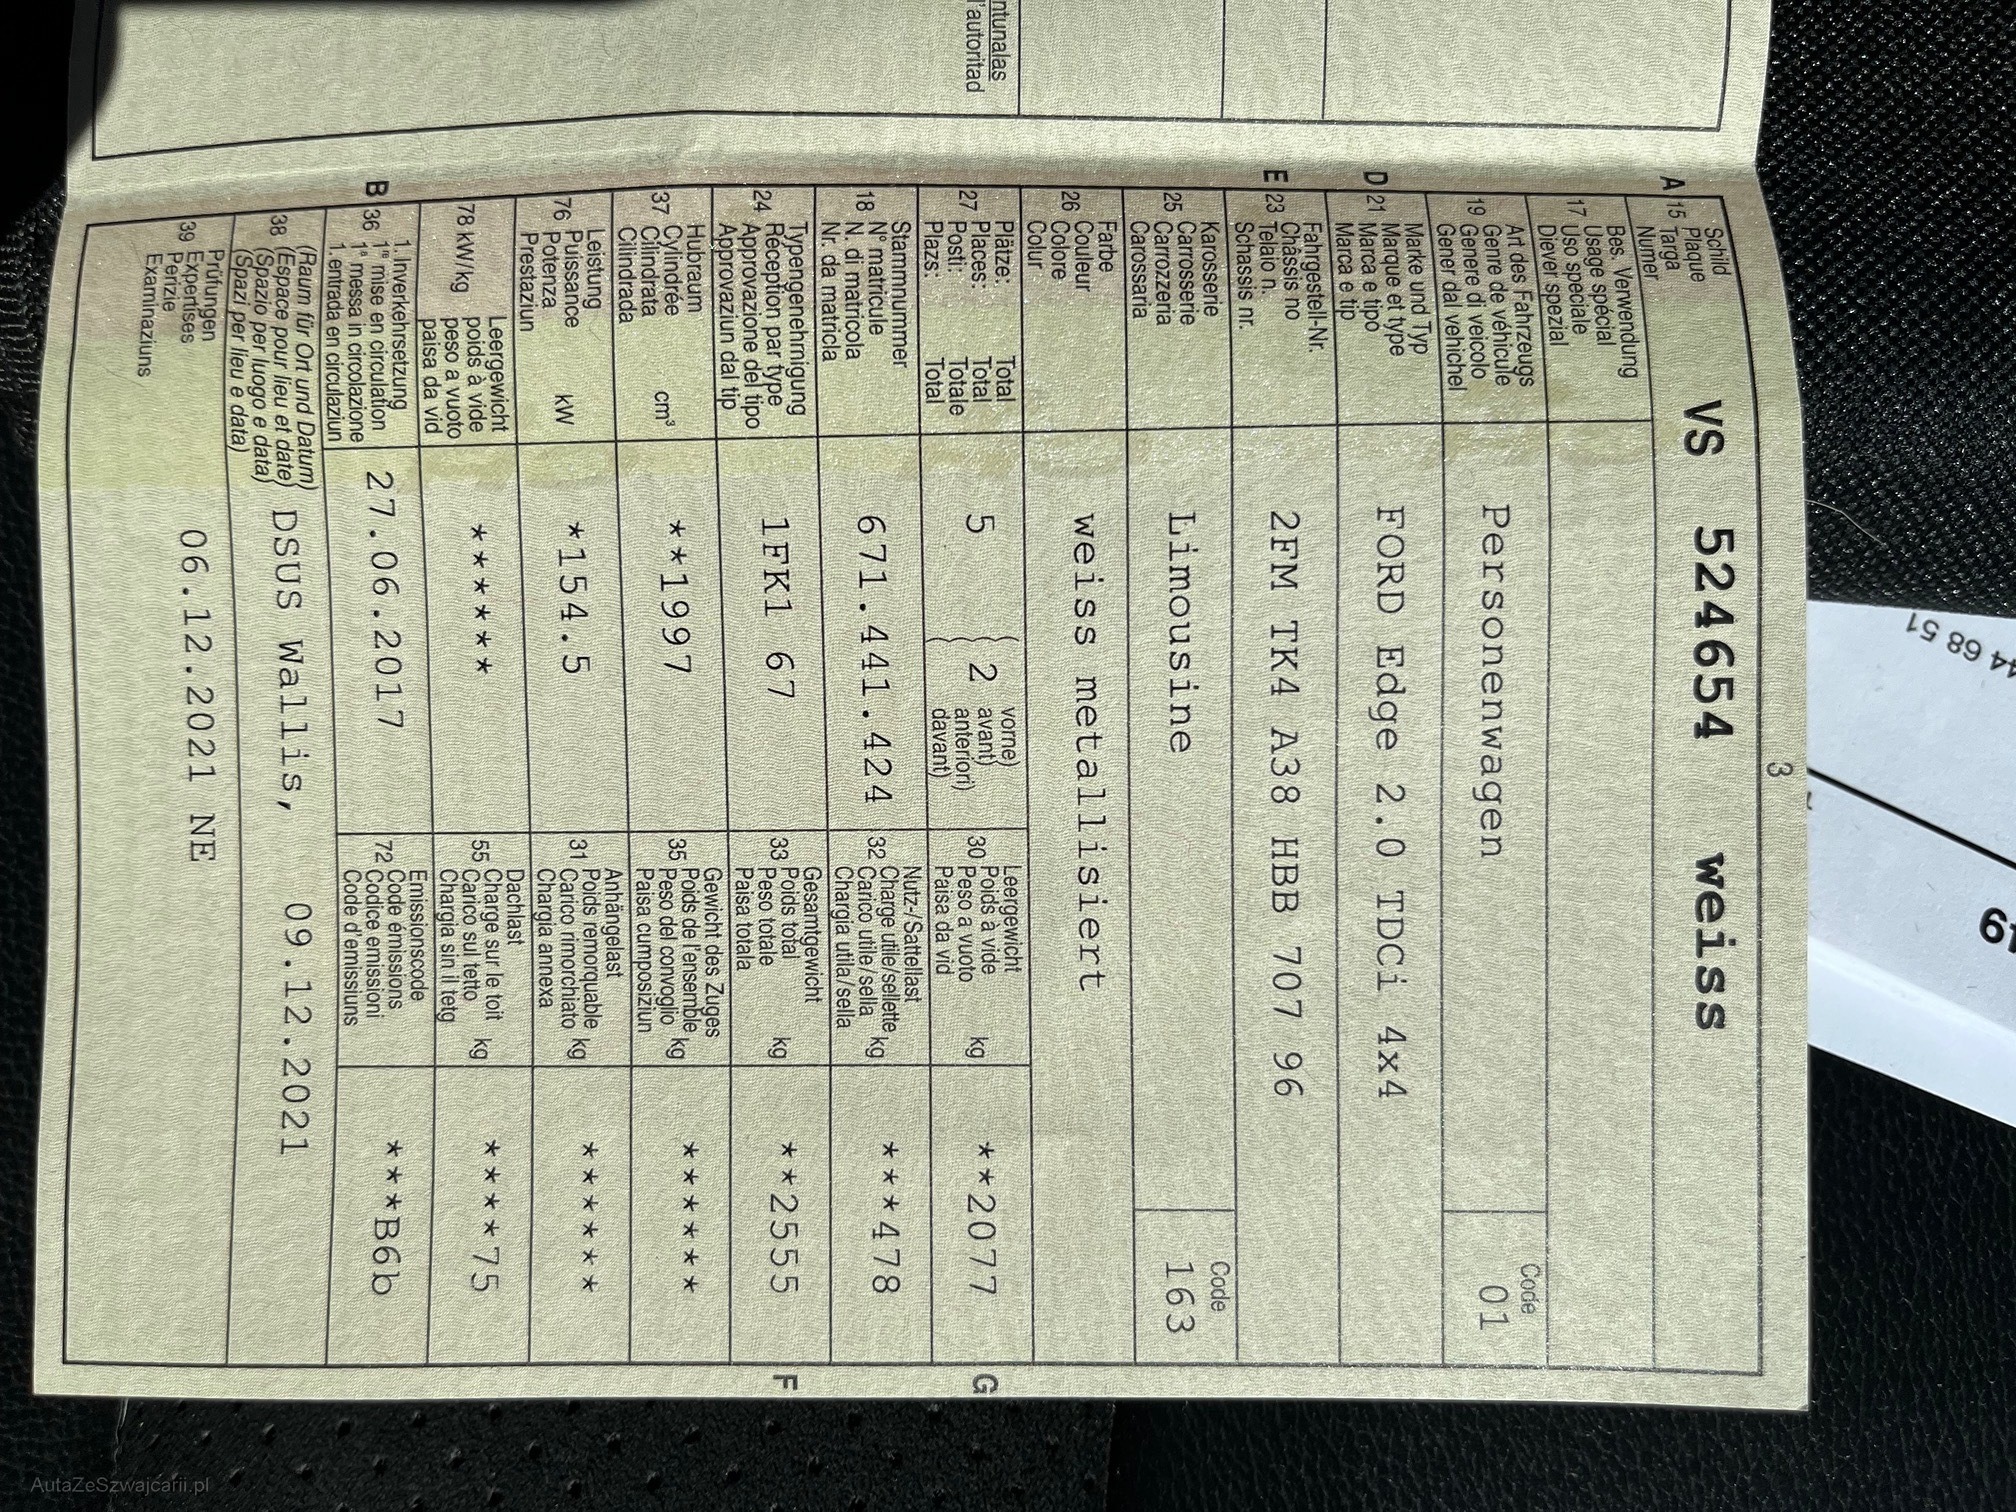 3
Schild
A 15 Plaque VS 524654 weiss
Targa
Numer
Bes. Verwendung
Usage spécial
17 Uso speciale
Diever spezial
Art des Fahrzeugs
Genre de véhicule Code
19 Genere di veicolo Personenwagen 01
Gener dal vehichel
Marke und Typ
Marque et type
D 21 Marca e tipo FORD Edge 2.0 TDCi 4x4
Marca e tip
Fahrgestell-Nr.
Châssis no
E 23 Telaio n. 2FM TK4 A38 HBB 707 96
Schassis nr.
Karosserie
Carrosserie Code
25 Carrozzeria Limousine 163
Carossaria
Farbe
Couleur
26 Colore weiss metallisiert
Colur
Plätze: Total vorne) Leergewicht
Places: Total avant) Poids à vide
27 Posti: Totale 5 2 anteriori) 30 Peso a vuoto kg **2077 G
Plazs: Total davant) Paisa da vid
Stammnummer Nutz-/Sattellast
N° matricule Charge utile/sellette
18 N. di matricola 671.441.424 32 Carico utile/sella kg ***478
Nr. da matricla Chargia utila/sella
Typengenehmigung Gesamtgewicht
Réception par type Poids total
24 Approvazione del tipo 1FK1 67 33 Peso totale kg **2555 F
Approvaziun dal tip Paisa totala
Hubraum Gewicht des Zuges
Cylindrée Poids de l'ensemble
37 Cilindrata cm³ **1997 35 Peso del convoglio kg ******
Cilindrada Paisa cumposiziun
Leistung Anhängelast
Puissance Poids remorquable
76 Potenza kW *154.5 31 Carico rimorchiato kg ******
Prestaziun Chargia annexa
Leergewicht Dachlast
poids à vide Charge sur le toit
78 kW/kg peso a vuoto ****** 55 Carico sul tetto kg ****75
paisa da vid Chargia sin il tetg
1. Inverkehrsetzung Emissionscode
1re mise en circulation Code émissions
B 36 1a messa in circolazione 27.06.2017 72 Codice emissioni ***B6b
1. entrada en circulaziun Code d'emissiuns
(Raum für Ort und Datum)
(Espace pour lieu et date)
38 (Spazio per luogo e data) DSUS Wallis, 09.12.2021
(Spazi per lieu e data)
Prüfungen
Expertises
39 Perizie 06.12.2021 NE
Examinaziuns
ntunalas
l'autoritad
44 68 51
AutaZeSzwajcarii.pl